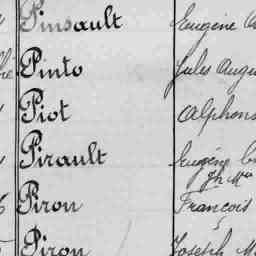 Pinsault Eugène
Pinto Jules
Piot
Pirault Eugène
Piron François
Piron Joseph